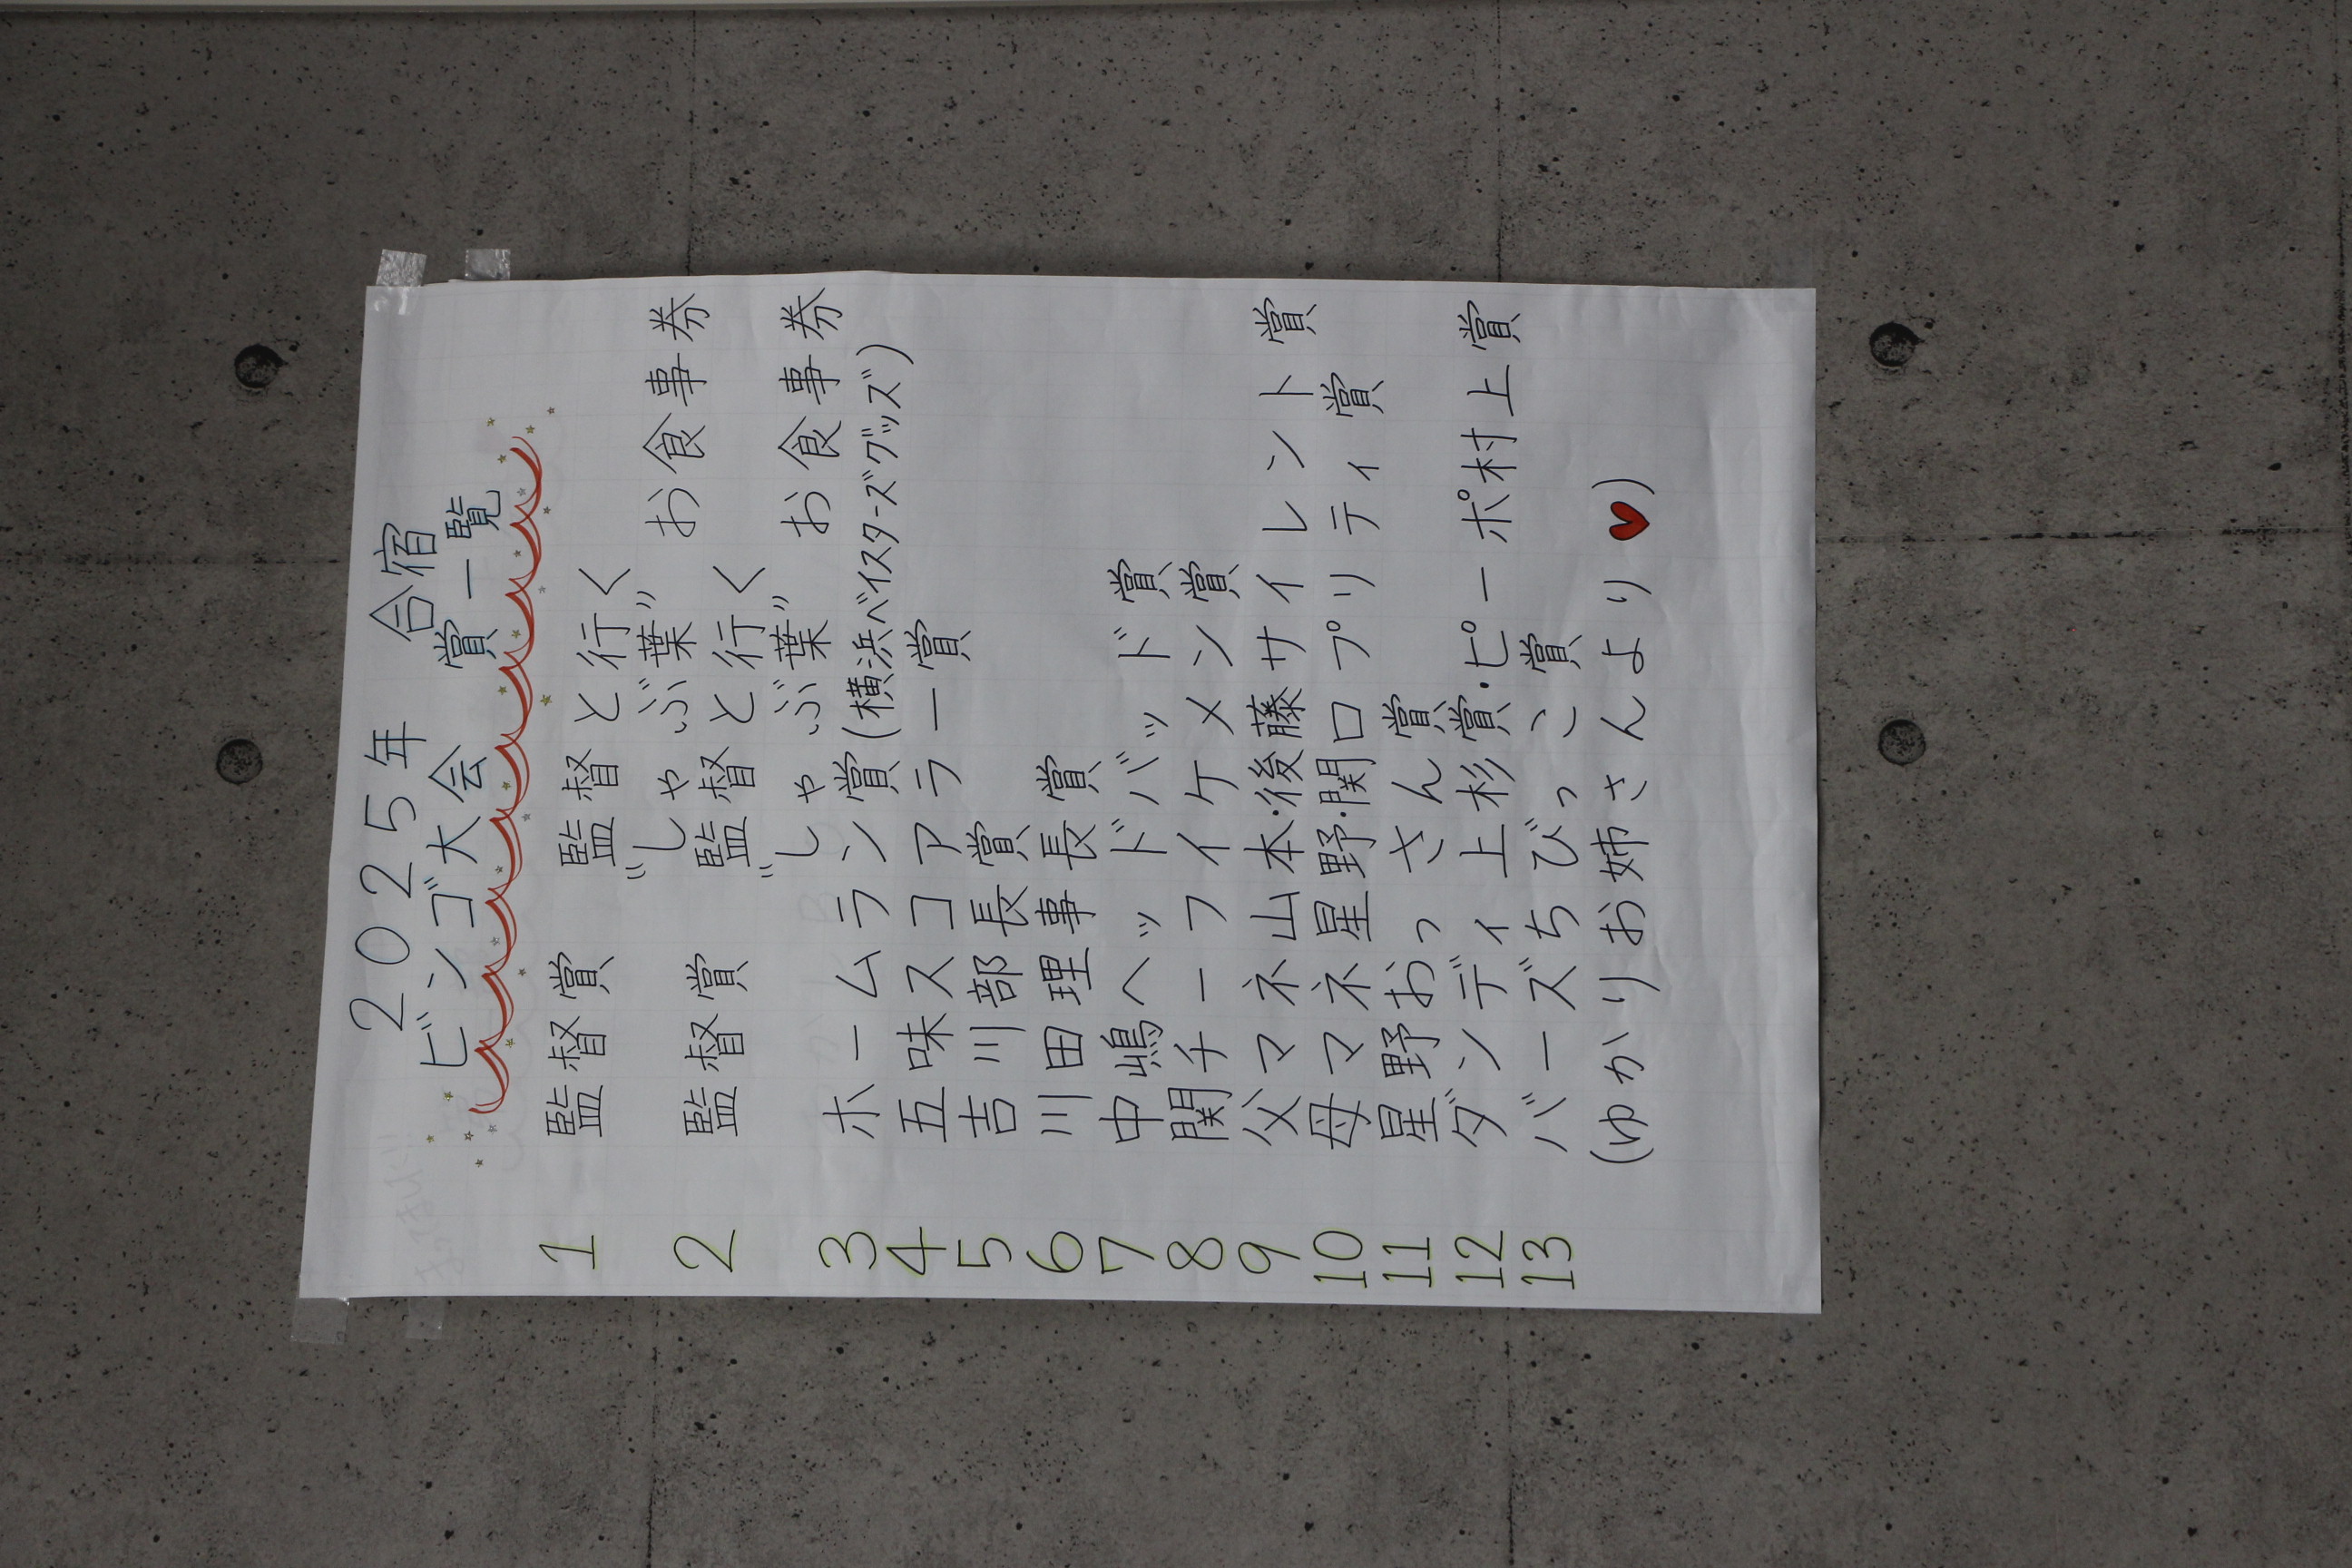 2025年 合宿
ビンゴ大会 賞一覧
1 監督賞 監督と行く
"しゃぶ葉"お食事券
2 監督賞 監督と行く
"しゃぶ葉"お食事券
3 ホームラン賞(横浜ベイスターズグッズ)
4 五味スコアラー賞
5 吉川部長賞
6 川田理事長賞
7 中嶋ヘッドバッド賞
8 関チーフイケメン賞
9 父マネ山本・後藤サイレント賞
10 母マネ星野・関口プリティ賞
11 星野おっさん賞
12 ダンディ上杉賞・ピーポ村上賞
13 バーズちびっこ賞
(ゆかりお姉さんより♥)